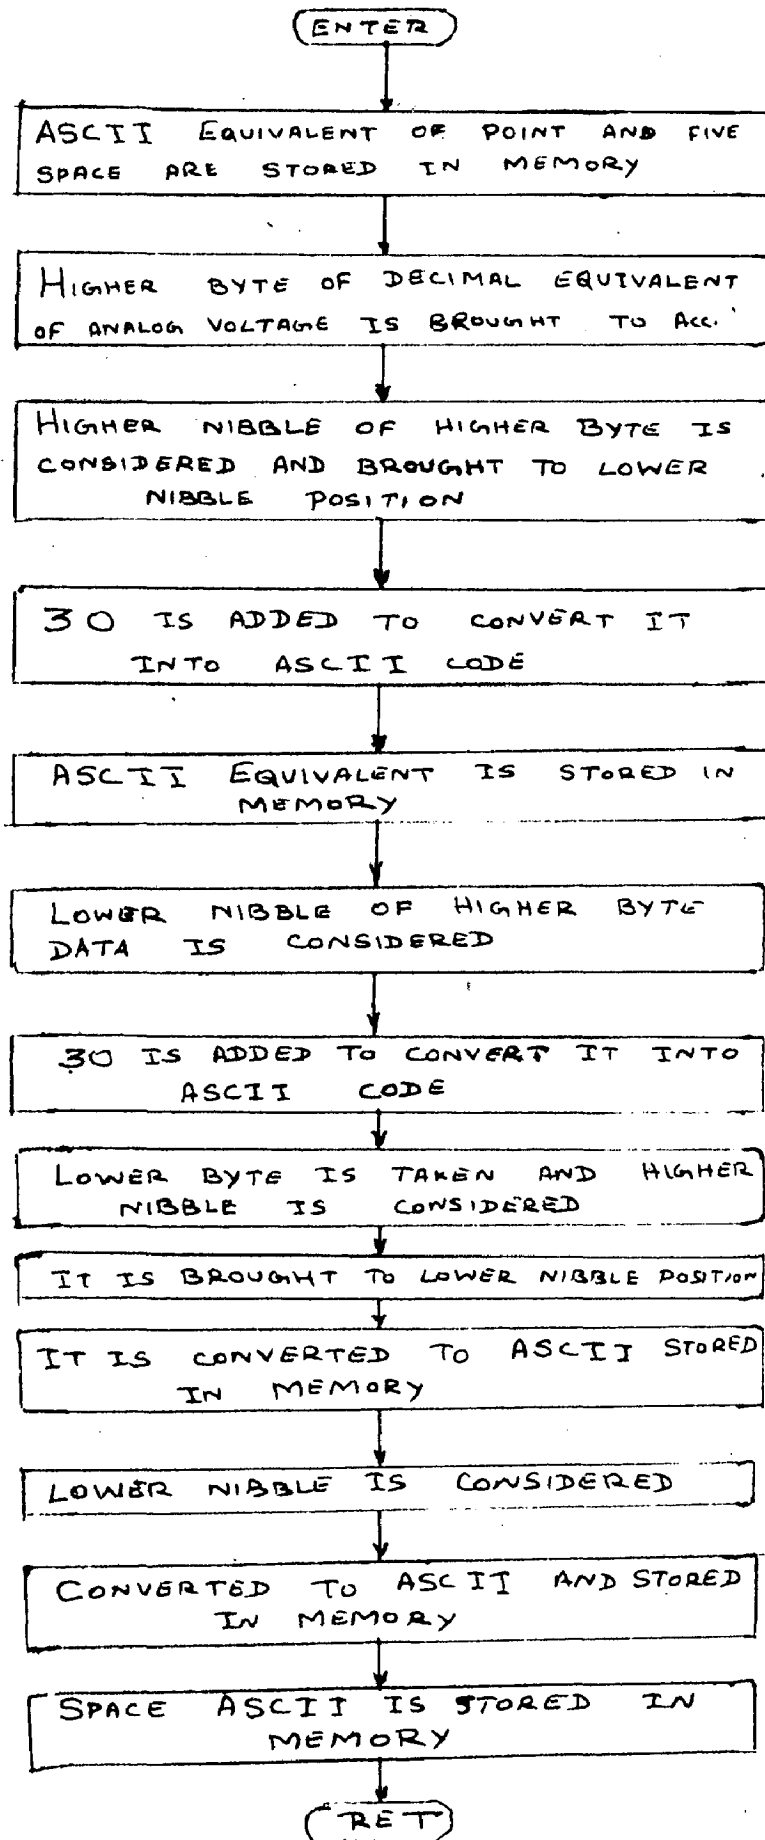 ENTER
ASCII EQUIVALENT OF POINT AND FIVE
SPACE ARE STORED IN MEMORY
HIGHER BYTE OF DECIMAL EQUIVALENT
OF ANALOG VOLTAGE IS BROUGHT TO ACC.
HIGHER NIBBLE OF HIGHER BYTE IS
CONSIDERED AND BROUGHT TO LOWER
NIBBLE POSITION
30 IS ADDED TO CONVERT IT
INTO ASCII CODE
ASCII EQUIVALENT IS STORED IN
MEMORY
LOWER NIBBLE OF HIGHER BYTE
DATA IS CONSIDERED
30 IS ADDED TO CONVERT IT INTO
ASCII CODE
LOWER BYTE IS TAKEN AND HIGHER
NIBBLE IS CONSIDERED
IT IS BROUGHT TO LOWER NIBBLE POSITION
IT IS CONVERTED TO ASCII STORED
IN MEMORY
LOWER NIBBLE IS CONSIDERED
CONVERTED TO ASCII AND STORED
IN MEMORY
SPACE ASCII IS STORED IN
MEMORY
RET